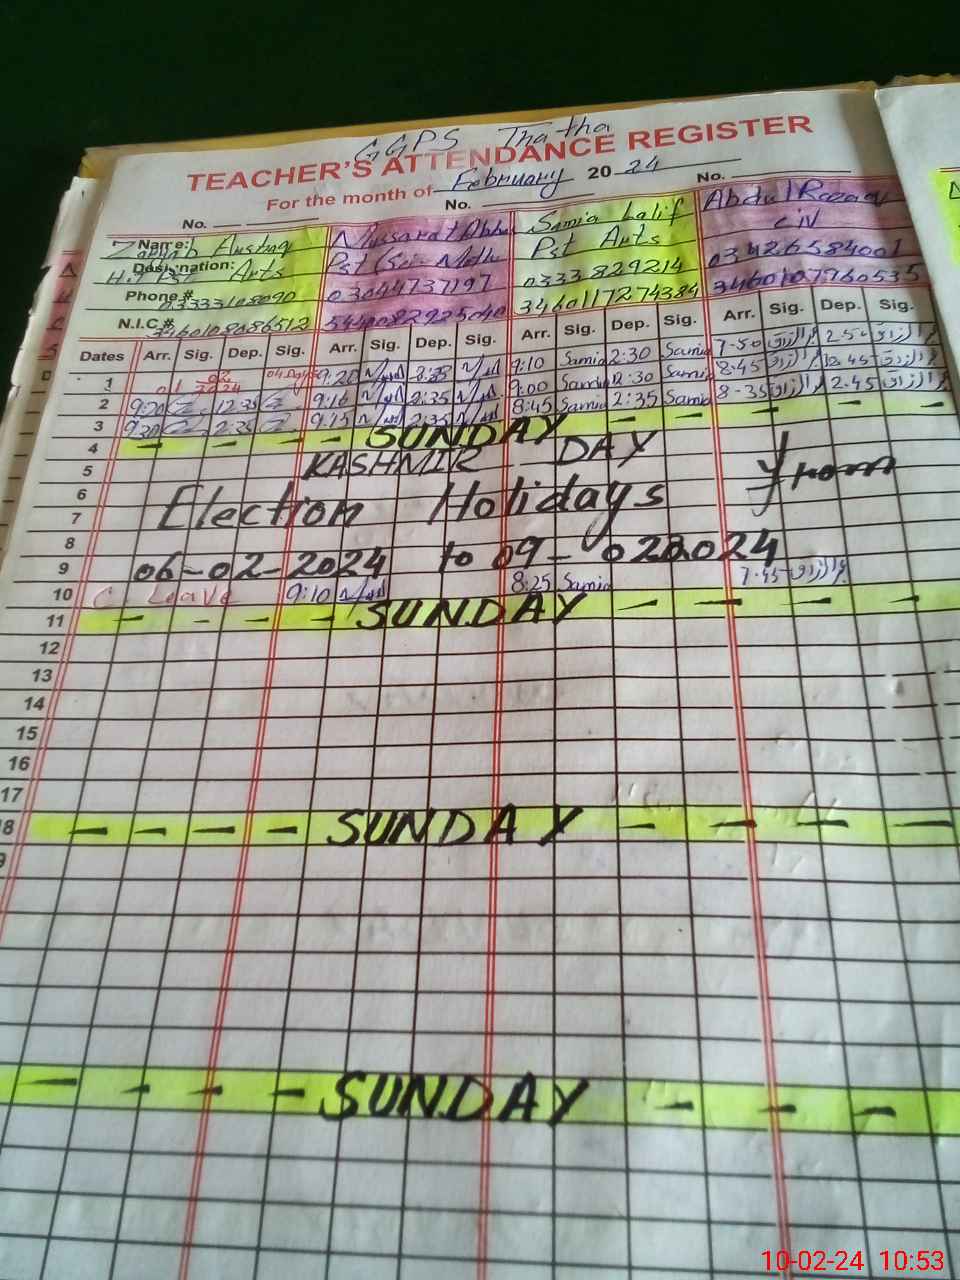 GGPS Thatha
TEACHER'S ATTENDANCE REGISTER
For the month of February 20 24
No. No. No.
Name: Zainab Samia Latif Abdul Razaq
Designation: H.T PST Arts Pst (Sci-Math Pst Arts C IV
Phone# 03333108090 03044737197 0333829214 03426584001
N.I.C.# 3460117274384 3460107960535
Dates Arr. Sig. Dep. Sig. Arr. Sig. Dep. Sig. Arr. Sig. Dep. Sig. Arr. Sig. Dep. Sig.
1 9:20 9:10 Samia 2:30 Samia 7-50
2 9:20 12:35 9:16 2:35 9:00 12:30 Samia 8-45 12-45
3 9:20 2:35 9:15 2:35 8:45 Samia 2:35 Samia 8-35 2-45
4 SUNDAY
5 KASHMIR DAY
6
7 Election Holidays from
8
9 06-02-2024 to 09-022024
10 C Leave 9:10 8:25 Samia 7-45
11 SUNDAY
12
13
14
15
16
17
18 SUNDAY
SUNDAY
10-02-24 10:53